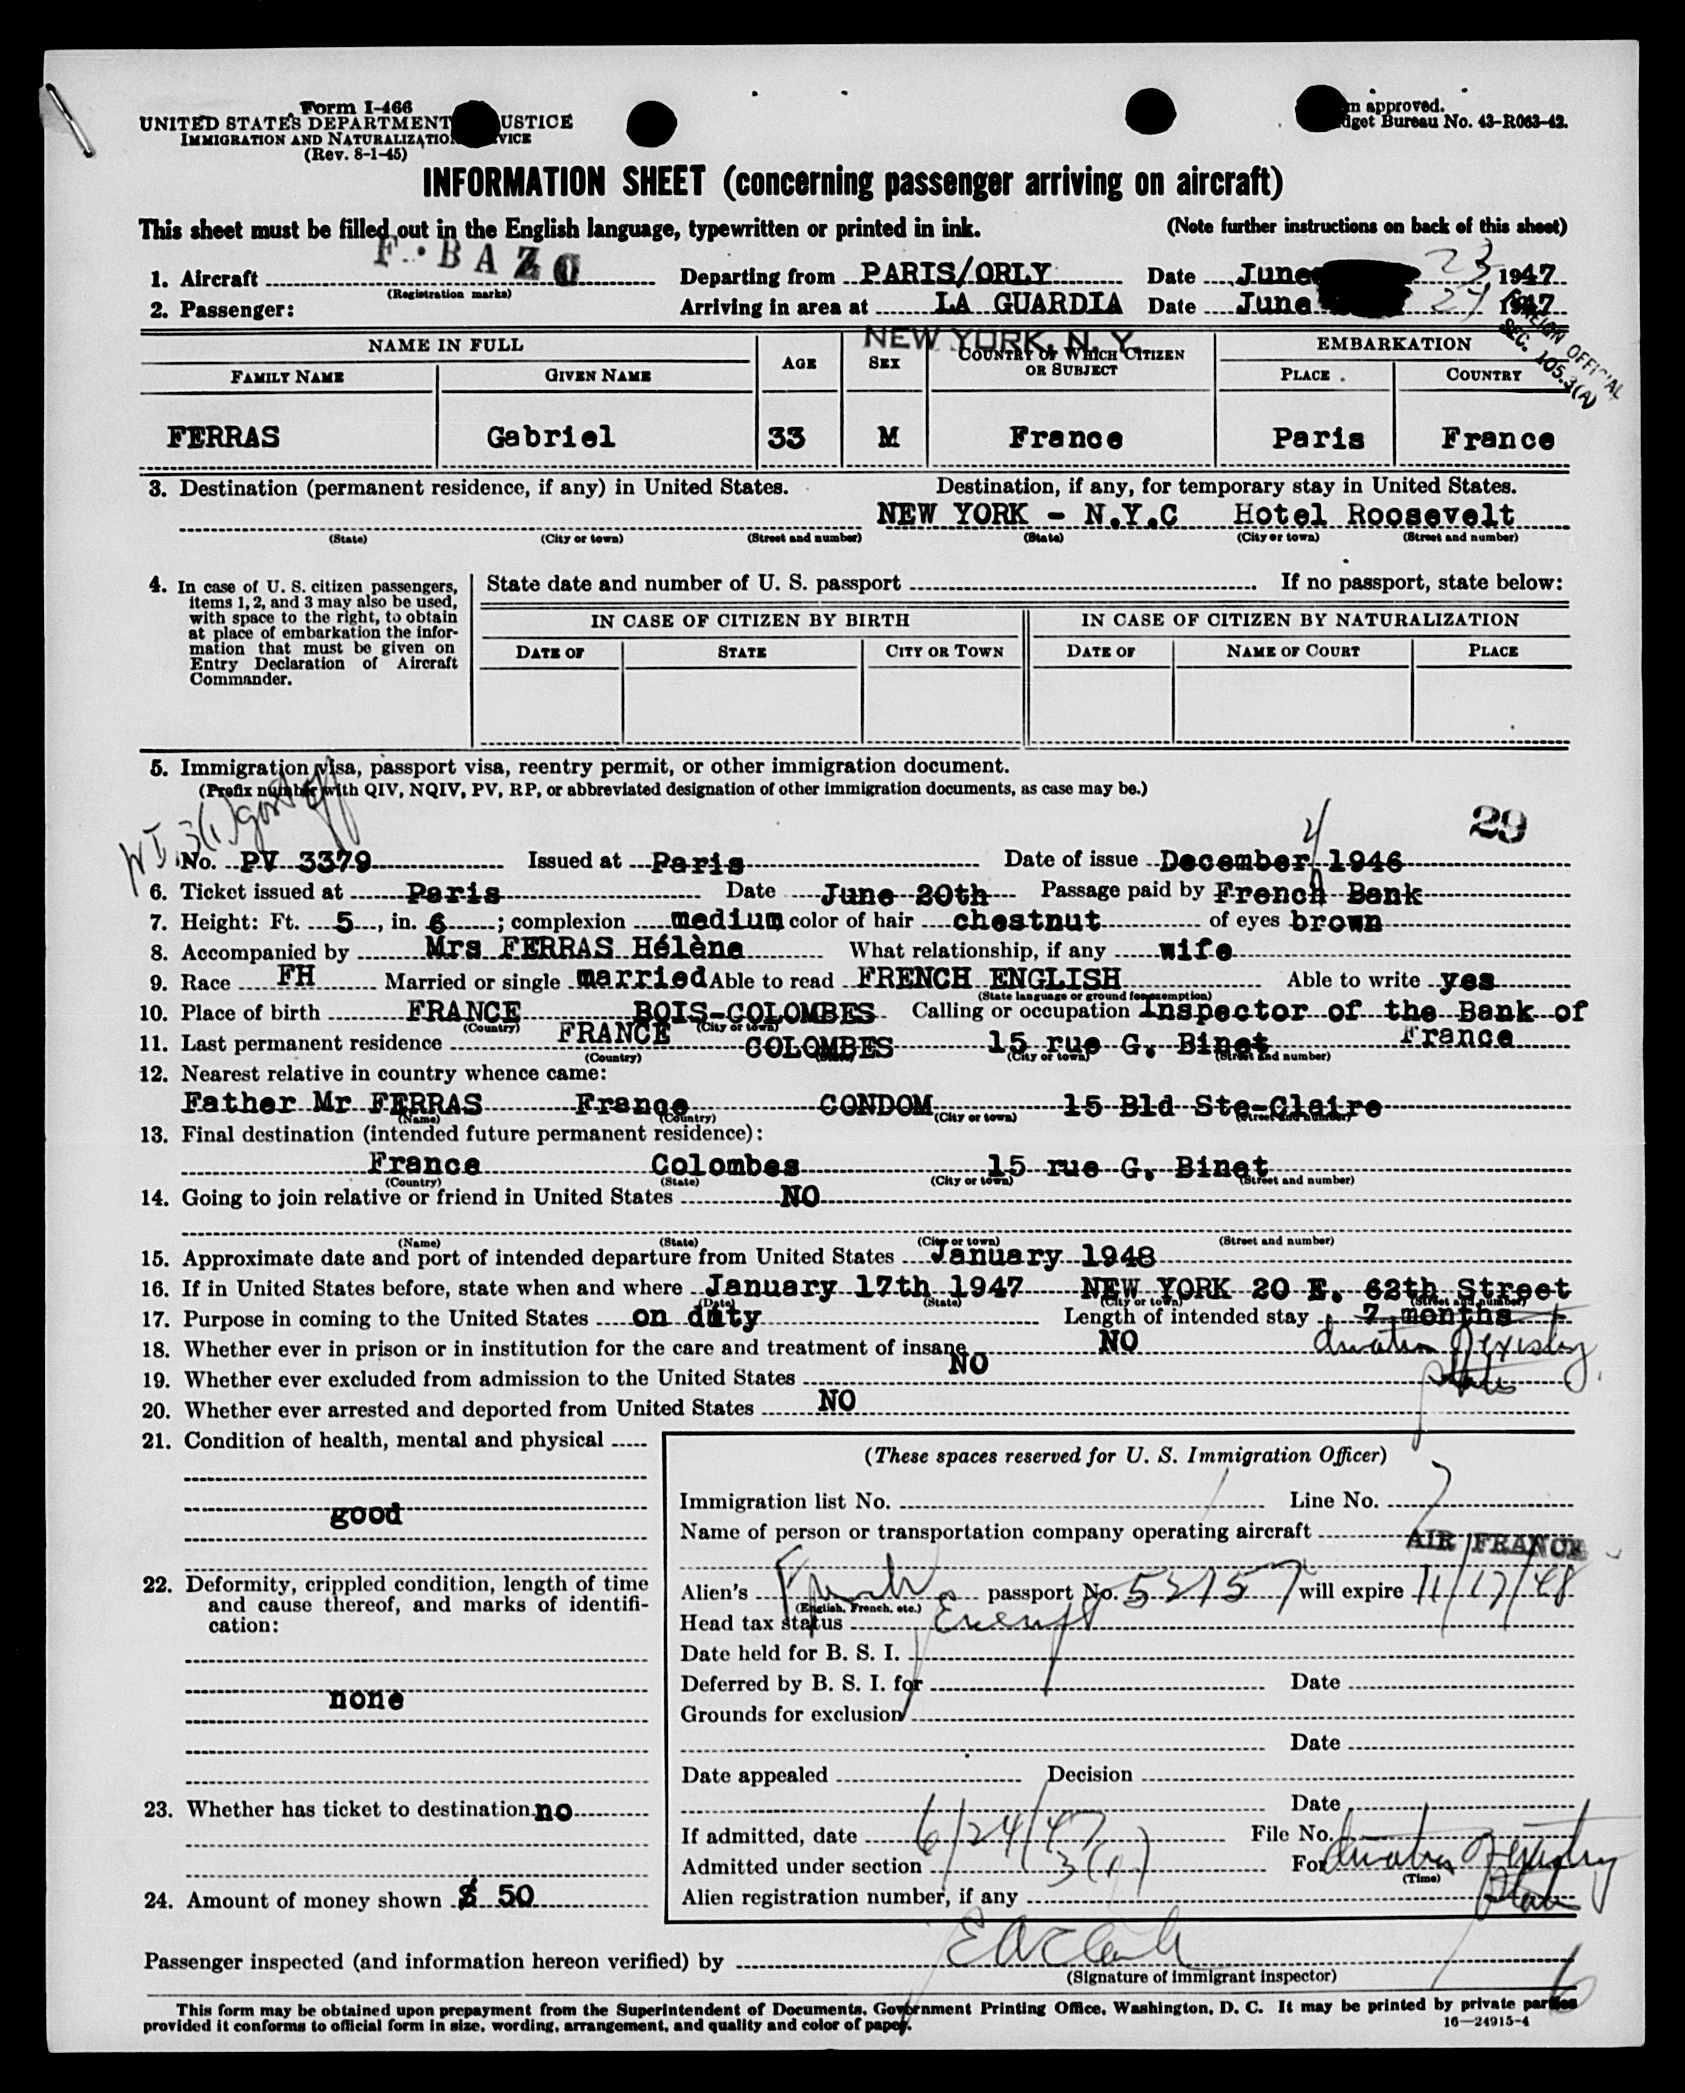 Form I-466
UNITED STATES DEPARTMENT USTICE
IMMIGRATION AND NATURALIZATIO VICE
(Rev. 8-1-45)
m approved.
dget Bureau No. 43-R063-42.
INFORMATION SHEET (concerning passenger arriving on aircraft)
This sheet must be filled out in the English language, typewritten or printed in ink. (Note further instructions on back of this sheet)
1. Aircraft F. BAZQ Departing from PARIS/ORLY Date June 23 1947
(Registration marks)
2. Passenger: Arriving in area at LA GUARDIA Date June 24 1947
NEW YORK, N. Y.
FOREIGN OFFICIAL
SEC. 105.3(A)
NAME IN FULL AGE SEX COUNTRY OF WHICH CITIZEN OR SUBJECT EMBARKATION
FAMILY NAME GIVEN NAME PLACE COUNTRY
FERRAS Gabriel 33 M France Paris France
3. Destination (permanent residence, if any) in United States. Destination, if any, for temporary stay in United States.
NEW YORK - N.Y.C Hotel Roosevelt
(State) (City or town) (Street and number) (State) (City or town) (Street and number)
4. In case of U. S. citizen passengers,
items 1, 2, and 3 may also be used,
with space to the right, to obtain
at place of embarkation the infor-
mation that must be given on
Entry Declaration of Aircraft
Commander.
State date and number of U. S. passport If no passport, state below:
IN CASE OF CITIZEN BY BIRTH IN CASE OF CITIZEN BY NATURALIZATION
DATE OF STATE CITY OR TOWN DATE OF NAME OF COURT PLACE
5. Immigration visa, passport visa, reentry permit, or other immigration document.
(Prefix number with QIV, NQIV, PV, RP, or abbreviated designation of other immigration documents, as case may be.)
3(1) gov't off
29
4
No. PV 3379 Issued at Paris Date of issue December 1946
6. Ticket issued at Paris Date June 20th Passage paid by French Bank
7. Height: Ft. 5, in. 6; complexion medium color of hair chestnut of eyes brown
8. Accompanied by Mrs FERRAS Hélène What relationship, if any wife
9. Race FH Married or single married Able to read FRENCH ENGLISH Able to write yes
(State language or ground for exemption)
10. Place of birth FRANCE BOIS-COLOMBES Calling or occupation Inspector of the Bank of France
(Country) (City or town)
11. Last permanent residence FRANCE COLOMBES 15 rue G. Binet
(Country) (State) (City or town) (Street and number)
12. Nearest relative in country whence came:
Father Mr FERRAS France CONDOM 15 Bld Ste-Claire
(Name) (Country) (City or town) (Street and number)
13. Final destination (intended future permanent residence):
France Colombes 15 rue G. Binet
(Country) (State) (City or town) (Street and number)
14. Going to join relative or friend in United States NO
(Name) (State) (City or town) (Street and number)
15. Approximate date and port of intended departure from United States January 1948
16. If in United States before, state when and where January 17th 1947 NEW YORK 20 E. 62th Street
(Date) (State) (City or town) (Street and number)
17. Purpose in coming to the United States on duty Length of intended stay 7 months
duration of existing status
18. Whether ever in prison or in institution for the care and treatment of insane NO
19. Whether ever excluded from admission to the United States NO
20. Whether ever arrested and deported from United States NO
21. Condition of health, mental and physical
good
22. Deformity, crippled condition, length of time
and cause thereof, and marks of identifi-
cation:
none
23. Whether has ticket to destination no
24. Amount of money shown $ 50
(These spaces reserved for U. S. Immigration Officer)
Immigration list No. 1 Line No. 7
Name of person or transportation company operating aircraft
AIR FRANCE
Alien's French passport No. 52157 will expire 11/17/48
(English, French, etc.)
Head tax status Exempt
Date held for B. S. I.
Deferred by B. S. I. for Date
Grounds for exclusion
Date
Date appealed Decision
Date
If admitted, date 6/24/47 File No.
Admitted under section 3(1) For duration of existing status
(Time)
Alien registration number, if any
Passenger inspected (and information hereon verified) by
(Signature of immigrant inspector)
This form may be obtained upon prepayment from the Superintendent of Documents, Government Printing Office, Washington, D. C. It may be printed by private parties
provided it conforms to official form in size, wording, arrangement, and quality and color of paper.
16—24915-4